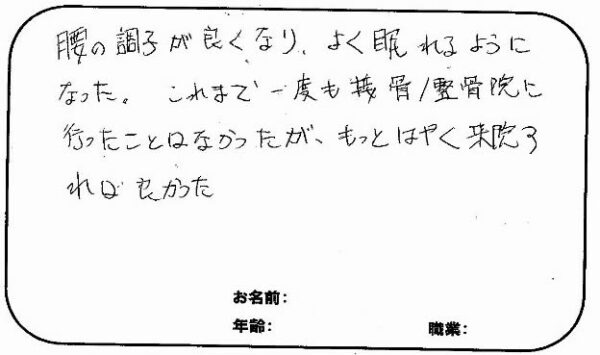 腰の調子が良くなり、よく眠れるように
なった。これまで一度も接骨/整骨院に
行ったことはなかったが、もっとはやく来院す
れば良かった
お名前:
年齢:
職業: